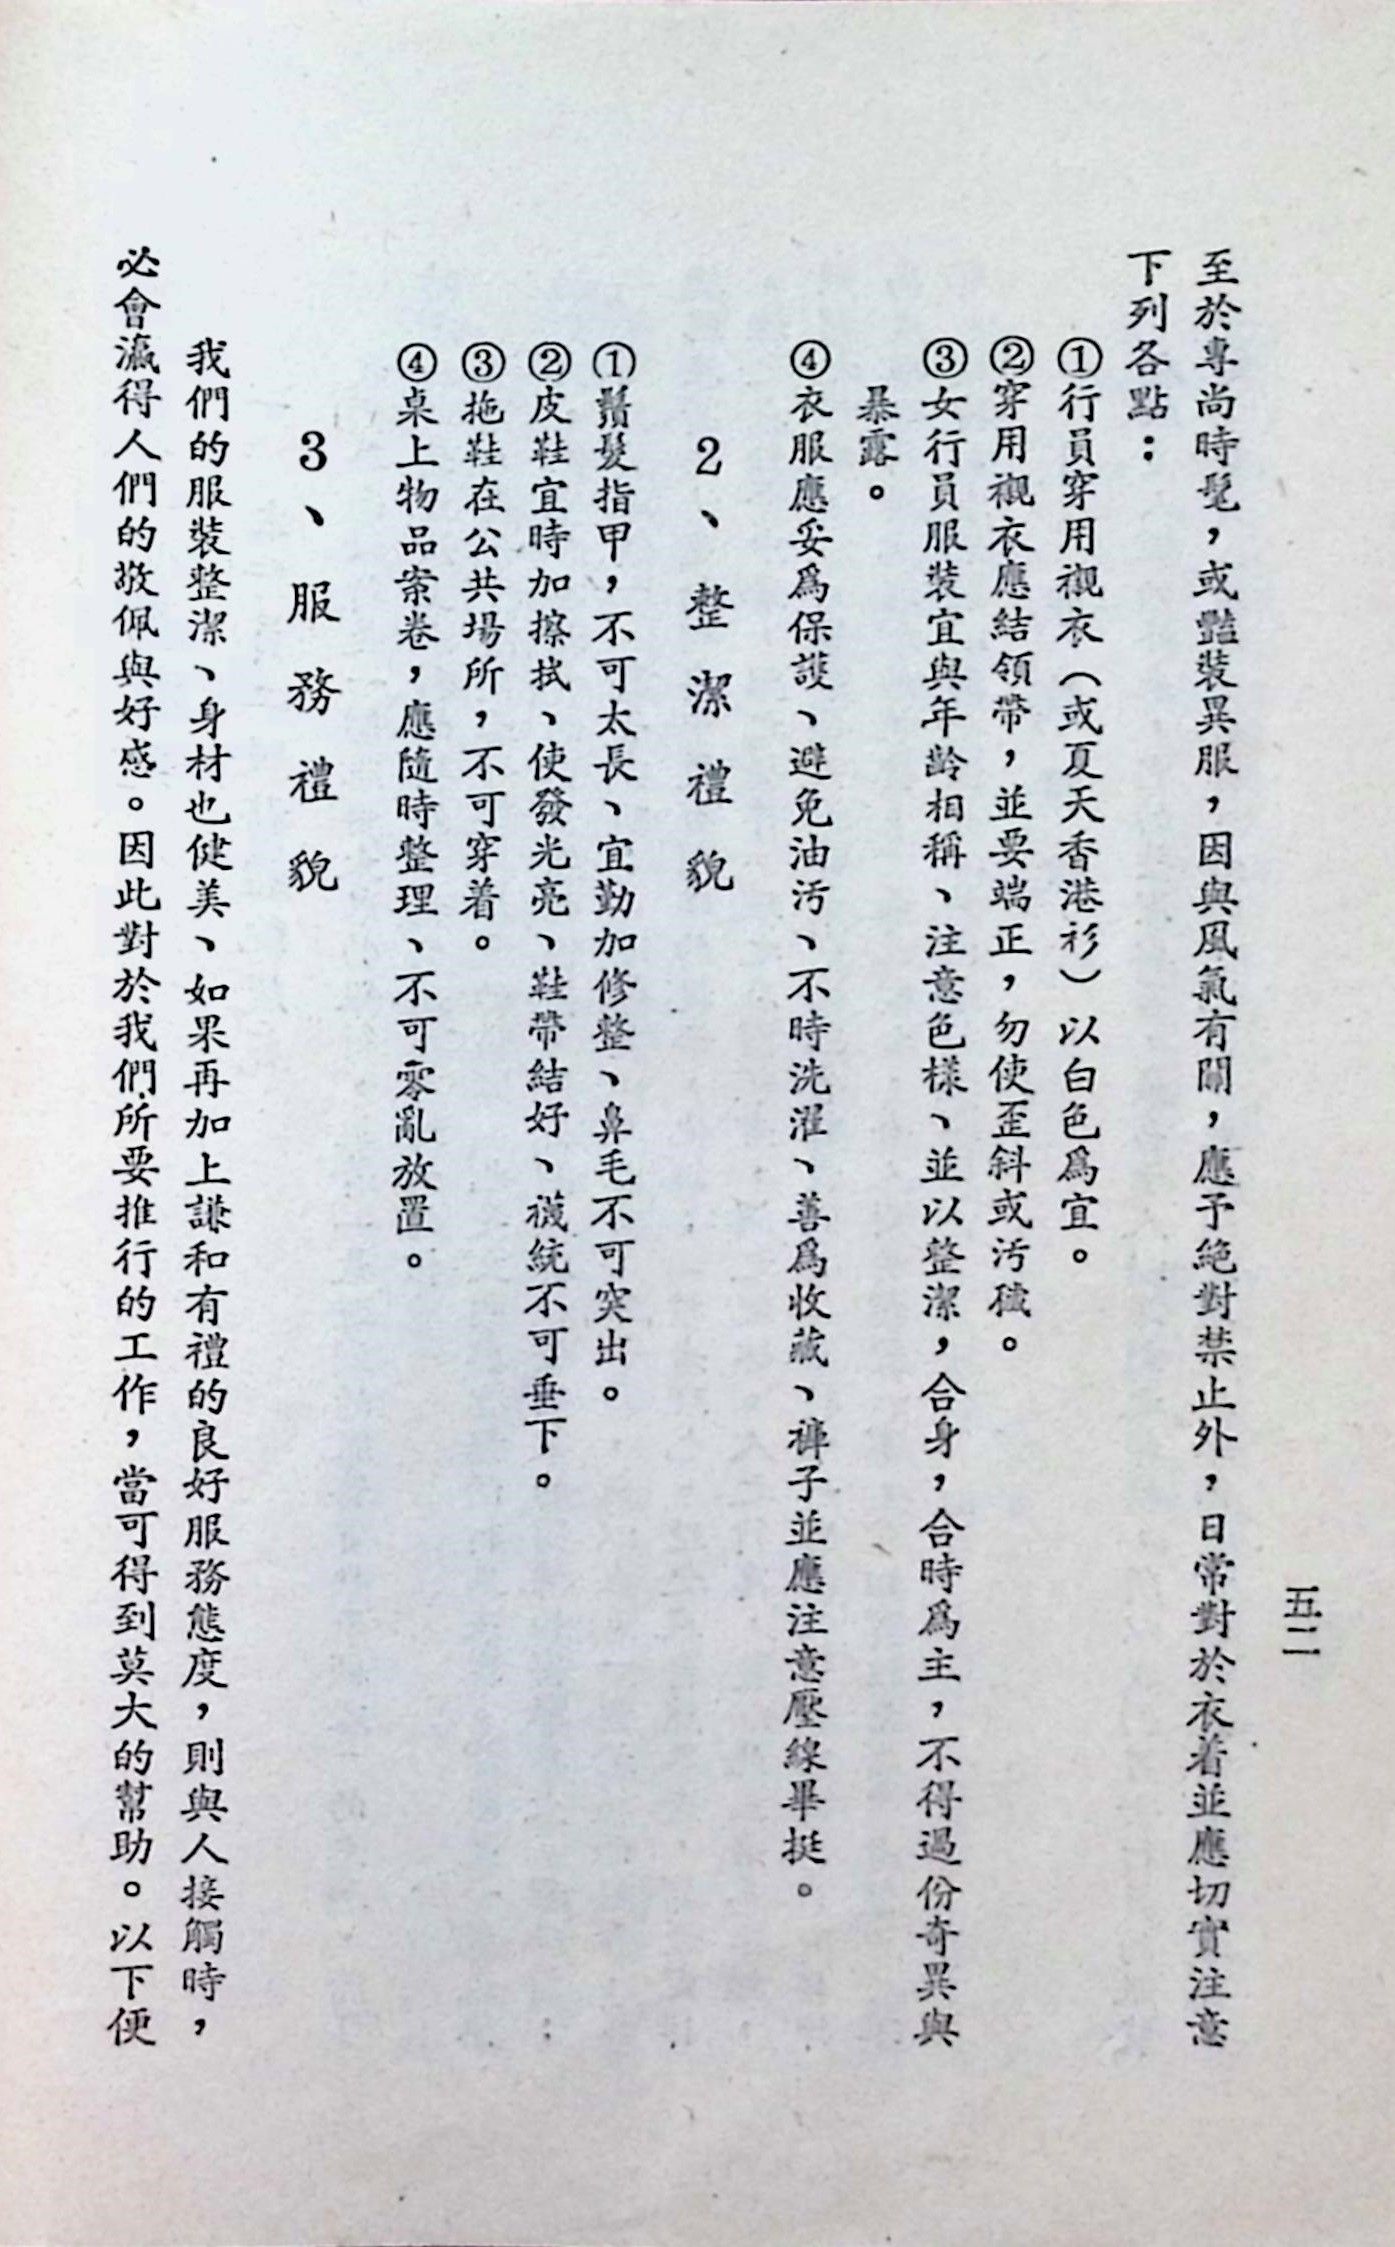 五二
至於專尚時髦，或豔裝異服，因與風氣有關，應予絕對禁止外，日常對於衣着並應切實注意
下列各點：
①行員穿用襯衣（或夏天香港衫）以白色爲宜。
②穿用襯衣應結領帶，並要端正，勿使歪斜或汚穢。
③女行員服裝宜與年齡相稱、注意色樣、並以整潔，合身，合時爲主，不得過份奇異與
暴露。
④衣服應妥爲保護、避免油汚、不時洗濯、善爲收藏、褲子並應注意壓線畢挺。
2、整潔禮貌
①鬚髮指甲，不可太長、宜勤加修整、鼻毛不可突出。
②皮鞋宜時加擦拭、使發光亮、鞋帶結好、襪統不可垂下。
③拖鞋在公共場所，不可穿着。
④桌上物品案卷，應隨時整理、不可零亂放置。
3、服務禮貌
我們的服裝整潔、身材也健美、如果再加上謙和有禮的良好服務態度，則與人接觸時，
必會瀛得人們的敬佩與好感。因此對於我們所要推行的工作，當可得到莫大的幫助。以下便